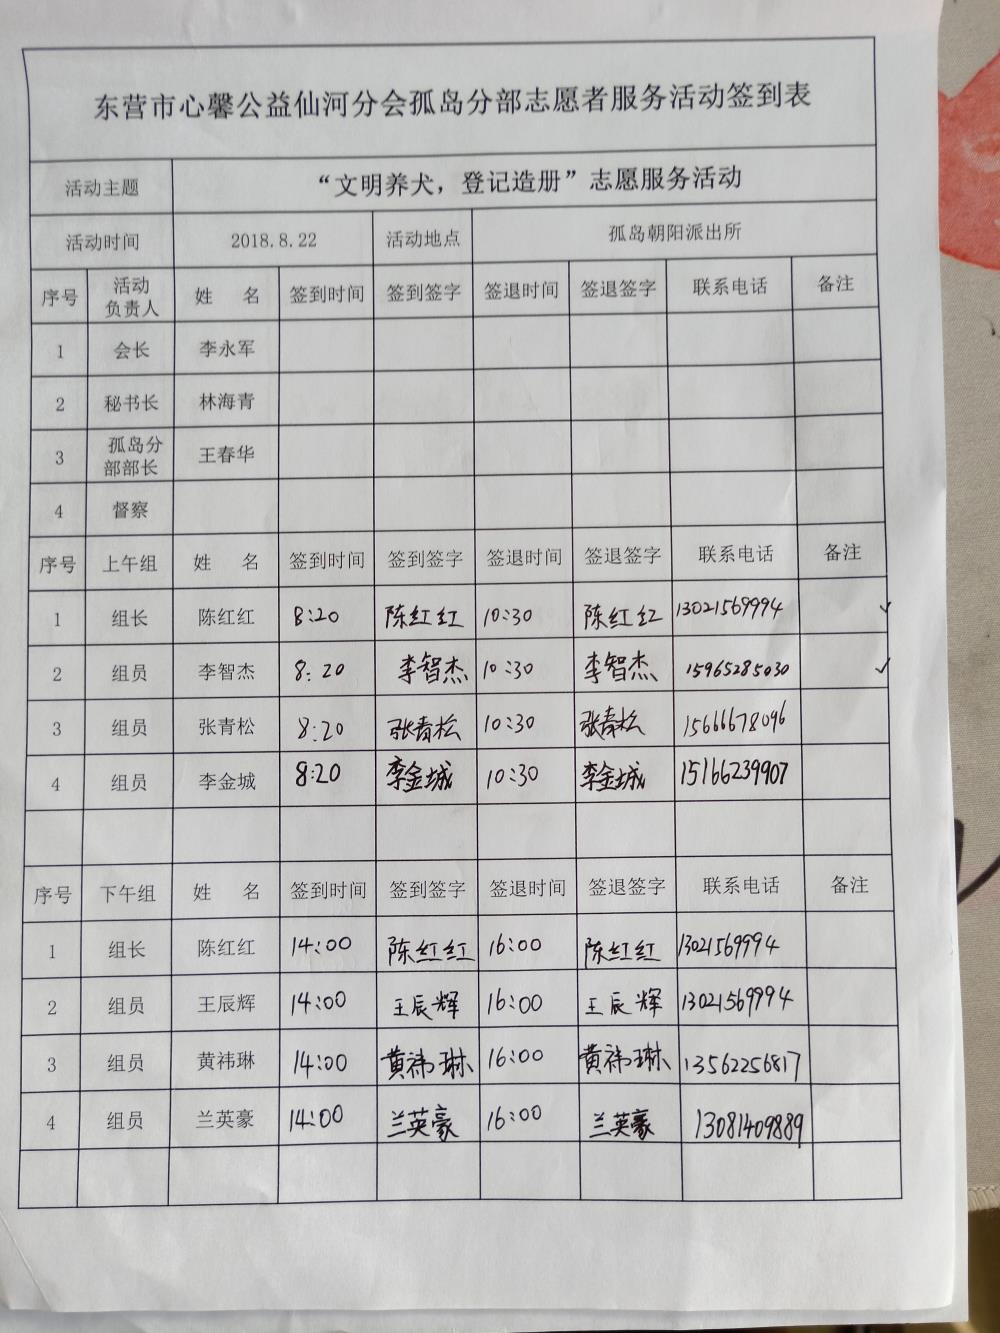 东营市心馨公益仙河分会孤岛分部志愿者服务活动签到表
活动主题 “文明养犬，登记造册”志愿服务活动
活动时间 2018.8.22 活动地点 孤岛朝阳派出所
序号 活动负责人 姓 名 签到时间 签到签字 签退时间 签退签字 联系电话 备注
1 会长 李永军
2 秘书长 林海青
3 孤岛分部部长 王春华
4 督察
序号 上午组 姓 名 签到时间 签到签字 签退时间 签退签字 联系电话 备注
1 组长 陈红红 8:20 陈红红 10:30 陈红红 13021569994
2 组员 李智杰 8:20 李智杰 10:30 李智杰 15965285030
3 组员 张青松 8:20 张青松 10:30 张青松 15666678096
4 组员 李金城 8:20 李金城 10:30 李金城 15166239907
序号 下午组 姓 名 签到时间 签到签字 签退时间 签退签字 联系电话 备注
1 组长 陈红红 14:00 陈红红 16:00 陈红红 13021569994
2 组员 王辰辉 14:00 王辰辉 16:00 王辰辉 13021569994
3 组员 黄祎琳 14:00 黄祎琳 16:00 黄祎琳 13562256817
4 组员 兰英豪 14:00 兰英豪 16:00 兰英豪 13081409889